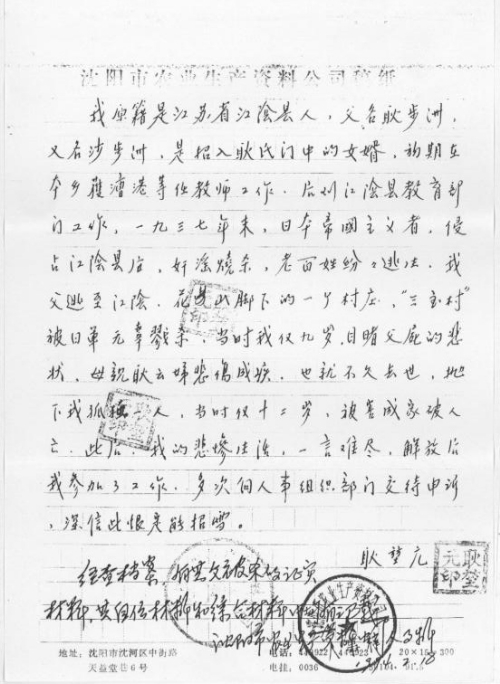 沈阳市农业生产资料公司稿纸
我原籍是江苏省江陰县人，父名耿步洲，
又名涉步洲，是招入耿氏门中的女婿，初期在
本乡璜港等任教师工作，后州江陰县教育部
门工作，一九三七年末，日本帝國主义者，侵
占江陰县后，奸淫燒杀，老百姓纷々逃法。我
父逃至江陰、花是山脚下的一个村庄，“三宝村”
被日军无辜戮杀，当时我仅九岁，目睹父屍的悲
状，母親耿云娣悲傷成疾，也就不久去世，抛
下我孤独一人，当时仅十二岁，被害成家破人
亡。此后，我的悲惨生活，一言难尽，解放后
我参加了工作，多次向人事组织部门交待申诉
，深信此恨定能招雪。
耿堃元
耿堃元印
经查档案，有其父被杀的证实
材料，其自传材料和综合材料中
沈阳市
地址：沈阳市沈河区中街路
天益堂巷6号
电话：
电挂：0036
20×15=300